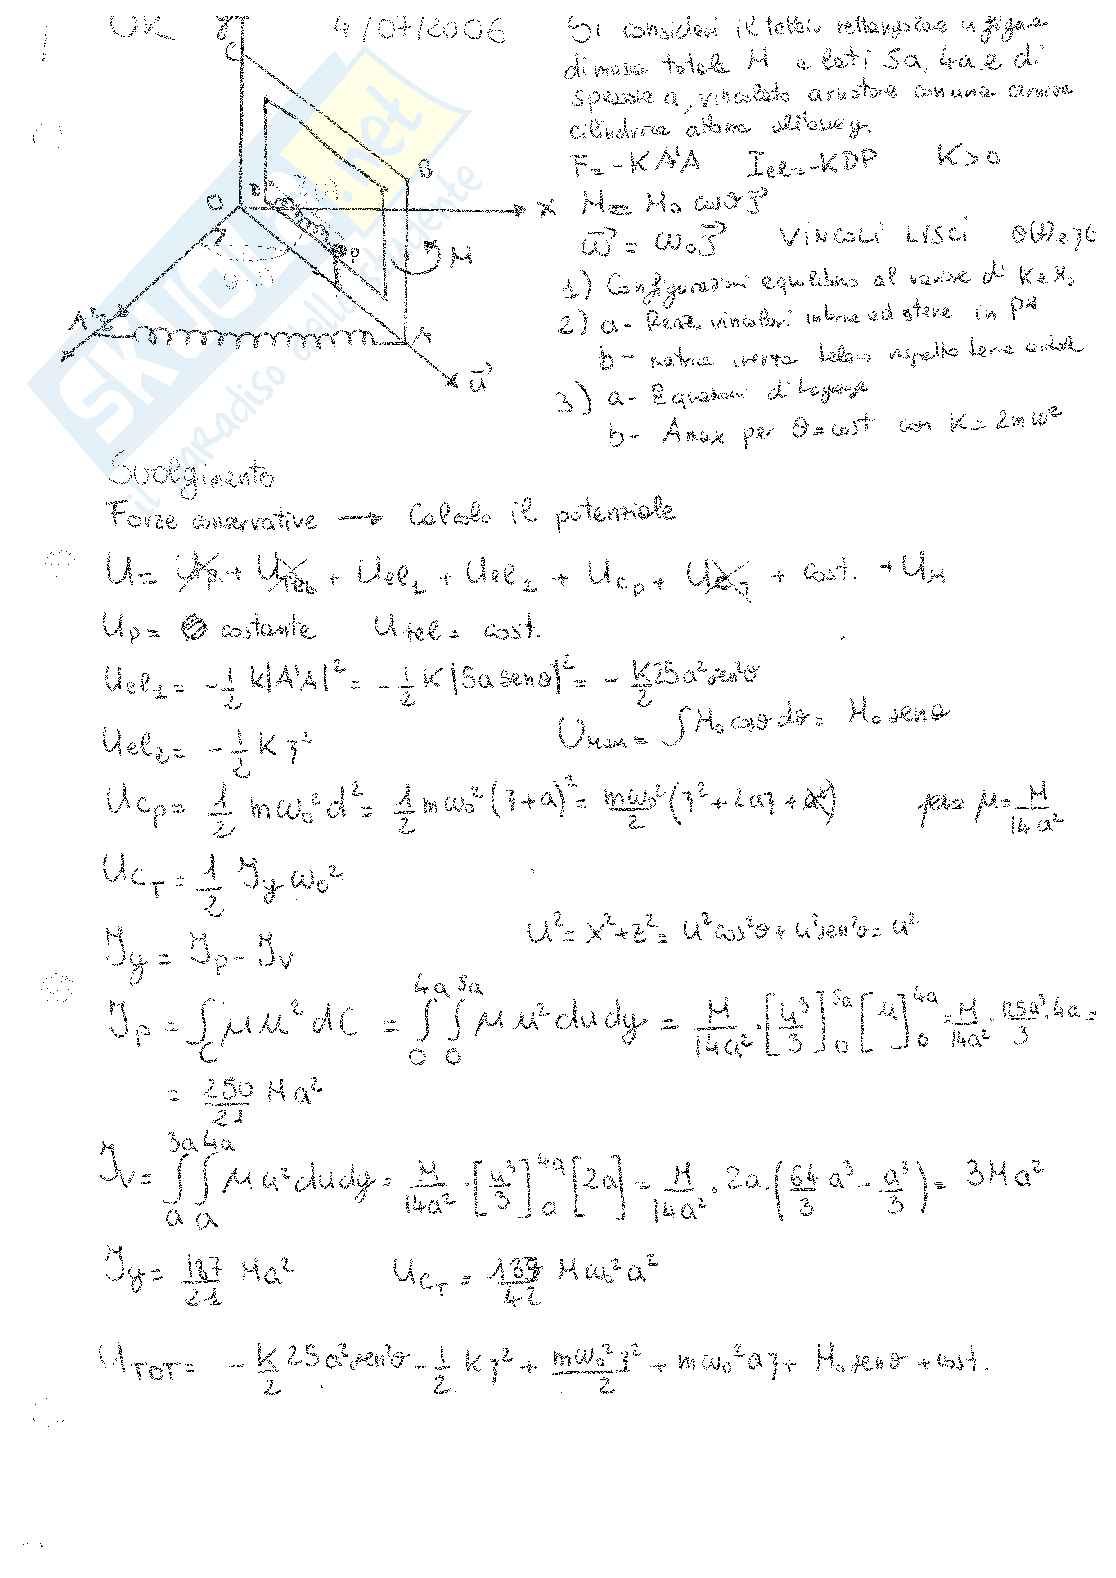 OK 4/07/2006
Si consideri il telaio rettangolare in figura
di massa totale M e lati 5a, 4a e di
spessore a, vincolato a ruotare con una cerniera
cilindrica attorno all'asse y.
F = -K A'A Iel = -KDP K>0
M = M₀ cosθ J⃗
ω⃗ = ω₀ J⃗ VINCOLI LISCI
1) Configurazioni equilibrio al variare di K e M₀
2) a - Reaz. vincolari interne ed esterne in
b - matrice inerzia telaio rispetto terna solidale
3) a - Equazioni di Lagrange
b - Amax per θ = cost con K = 2mω²
y
C
B
O
D
P
x
M
A'
z
A
u⃗
SKUOLA.net
il paradiso dello studente
Svolgimento
Forze conservative → Calcolo il potenziale
U = Up + Utel + Uel₁ + Uel₂ + Ucp + UcT + cost. + UM
Up = costante Utel = cost.
Uel₁ = -1/2 k|A'A|² = -1/2 K|5a senθ|² = -K/2 25a² sen²θ
Umom = ∫M₀ cosθ dθ = M₀ senθ
Uel₂ = -1/2 K ʒ²
Ucp = 1/2 mω₀² d² = 1/2 mω₀² (ʒ+a)² = mω₀²/2 (ʒ² + 2aʒ + a²) μ = M/14a²
UcT = 1/2 Jy ω₀²
Jy = Jp - Jv u² = x² + z² = u² cos²θ + u² sen²θ = u²
Jp = ∫C μu² dC = ∫₀⁴ᵃ ∫₀⁵ᵃ μu² du dy = M/14a² · [u³/3]₀⁵ᵃ [u]₀⁴ᵃ = M/14a² · 125a³/3 · 4a =
= 250/21 Ma²
Jv = ∫ₐ³ᵃ ∫ₐ⁴ᵃ μu² du dy = M/14a² · [u³/3]ₐ⁴ᵃ [2a] = M/14a² · 2a · (64/3 a³ - a³/3) = 3Ma²
Jy = 187/21 Ma² UcT = 187/42 Mω₀² a²
UTOT = -K/2 25a² sen²θ - 1/2 Kʒ² + mω₀²ʒ²/2 + mω₀² aʒ + M₀ senθ + cost.